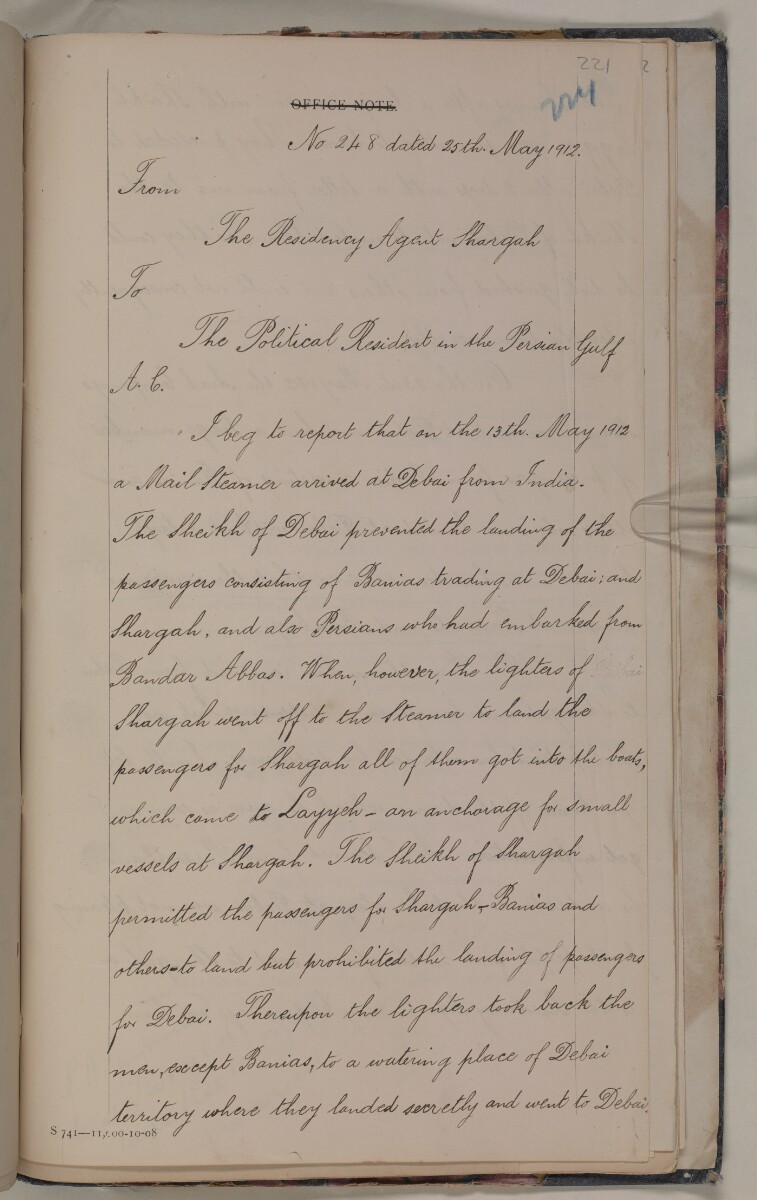 221
224
OFFICE NOTE.
No 248 dated 25th. May 1912.
From
The Residency Agent Shargah
To
The Political Resident in the Persian Gulf
A. C.
I beg to report that on the 13th. May 1912
a Mail Steamer arrived at Debai from India.
The Sheikh of Debai prevented the landing of the
passengers consisting of Banias trading at Debai; and
Shargah, and also Persians who had embarked from
Bandar Abbas. When, however, the lighters of
Shargah went off to the Steamer to land the
passengers for Shargah all of them got into the boats,
which came to Layyeh - an anchorage for small
vessels at Shargah. The Sheikh of Shargah
permitted the passengers for Shargah - Banias and
others - to land but prohibited the landing of passengers
for Debai. Thereupon the lighters took back the
men, except Banias, to a watering place of Debai
territory where they landed secretly and went to Debai.
S 741—11,000-10-08